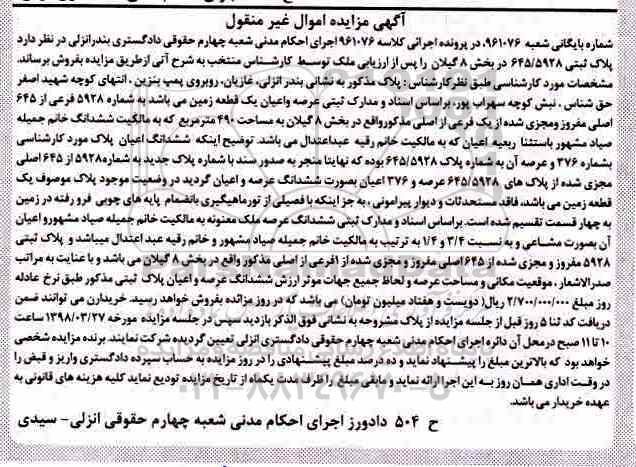 آگهی مزایده اموال غیر منقول
شماره بایگانی شعبه ۹۶۱۰۷۶، در پرونده اجرائی کلاسه ۹۶۱۰۷۶ اجرای احکام مدنی شعبه چهارم حقوقی دادگستری بندرانزلی در نظر دارد
پلاک ثبتی ۶۴۵/۵۹۲۸ در بخش ۸ گیلان را پس از ارزیابی ملک توسط کارشناس منتخب به شرح آتی ازطریق مزایده بفروش برساند.
مشخصات مورد کارشناسی طبق نظرکارشناس : پلاک مذکور به نشانی بندر انزلی، غازیان، روبروی پمپ بنزین ، انتهای کوچه شهید اصغر
حق شناس ، نبش کوچه سهراب پور، براساس اسناد و مدارک ثبتی عرصه واعیان یک قطعه زمین می باشد به شماره ۵۹۲۸ فرعی از ۶۴۵
اصلی مفروز ومجزی شده از یک فرعی از اصلی مذکورواقع در بخش ۸ گیلان به مساحت ۴۹۰ مترمربع که به مالکیت ششدانگ خانم جمیله
صیاد مشهور باستثنا ربعیه اعیان که به مالکیت خانم رقیه عبداعتدال می باشد. توضیح اینکه ششدانگ اعیان پلاک مورد کارشناسی
بشماره ۳۷۶ و عرصه آن به شماره پلاک ۶۴۵/۵۹۲۸ بوده که نهایتا منجر به صدور سند با شماره پلاک جدید به شماره۵۹۲۸ از ۶۴۵ اصلی
مجزی شده از پلاک های ۶۴۵/۵۹۲۸ عرصه و ۳۷۶ اعیان بصورت ششدانگ عرصه و اعیان گردید در وضعیت موجود پلاک موصوف یک
قطعه زمین می باشد، فاقد مستحدثات و دیوار پیرامونی ، به جز اینکه با فصیلی از تورماهیگیری بانضمام پایه های چوبی فرو رفته در زمین
به چهار قسمت تقسیم شده است. براساس اسناد و مدارک ثبتی ششدانگ عرصه ملک معنونه به مالکیت خانم جمیله صیاد مشهورو اعیان
آن بصورت مشاعی و به نسبت ۳/۴ و ۱/۴ به ترتیب به مالکیت خانم جمیله صیاد مشهور و خانم رقیه عبد اعتدال میباشد و پلاک ثبتی
۵۹۲۸ مفروز و مجزی شده از ۶۴۵اصلی مفروز و مجزی شده از ۱فرعی از اصلی مذکور واقع در بخش ۸ گیلان می باشد و با عنایت به مراتب
صدرالاشعار ، موقعیت مکانی و مساحت عرصه و لحاظ جمیع جهات موثر ارزش ششدانگ عرصه و اعیان پلاک ثبتی مذکور طبق نرخ عادله
روز مبلغ ۲/۷۰۰/۰۰۰/۰۰۰ ریال( دویست و هفتاد میلیون تومان) می باشد که در روز مزائده بفروش خواهد رسید. خریدارن می توانند ضمن
دریافت کد ثنا ۵ روز قبل از جلسه مزایده از پلاک مشروحه به نشانی فوق الذکر بازدید سپس در جلسه مزایده مورخه ۱۳۹۸/۰۳/۲۷ ساعت
۱۰ تا ۱۱ صبح درمحل آن دائره اجرای احکام مدنی شعبه چهارم حقوقی دادگستری انزلی تعیین گردیده شرکت نمایند. برنده مزایده شخصی
خواهد بود که بالاترین مبلغ را پیشنهاد نماید و ده درصد مبلغ پیشنهادی را در روز مزایده به حساب سپرده دادگستری واریز و قبض را
در وقت اداری همان روز به این اجرا ارائه نماید و مابقی مبلغ را ظرف مدت یکماه از تاریخ مزایده تودیع نماید کلیه هزینه های قانونی به
عهده خریدار می باشد.
ح ۵۰۴ دادورز اجرای احکام مدنی شعبه چهارم حقوقی انزلی- سیدی
۰۲۱-۸۸۳۴۹۶۷۰-۵